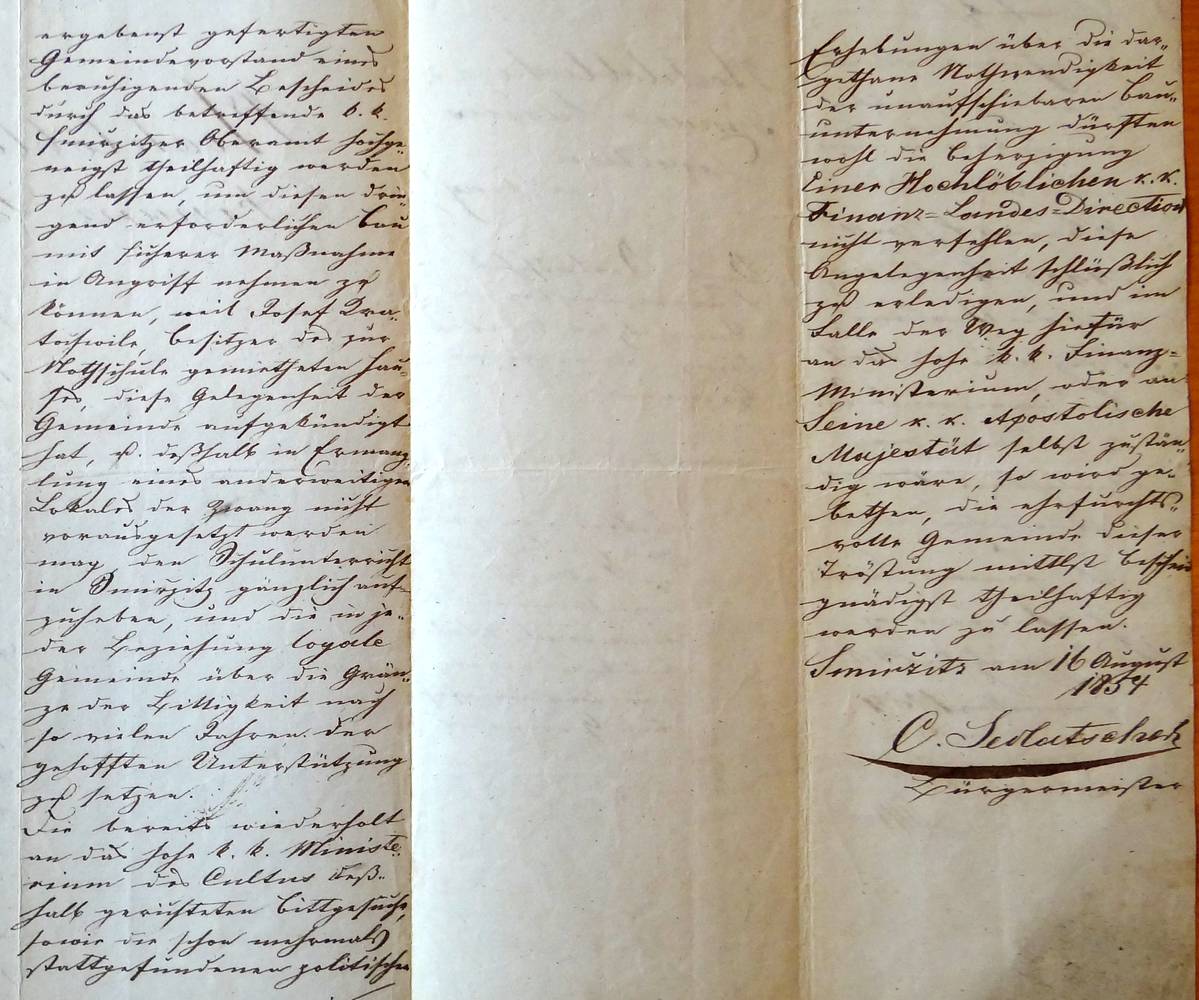 ergebenst gefertigten
Gemeindevorstand eines
beruhigenden Bescheides
durch das betreffende k. k.
Smirzitzer Oberamt hochge-
neigst theilhaftig werden
zu lassen, um diesen drin-
gend erforderlichen Bau
mit sicherer Maßnahme
in Angriff nehmen zu
können, weil Josef Kra-
tochwile, Besitzer des zur
Nothschule gemietheten Hau-
ses, diese Gelegenheit der
Gemeinde aufgekündigt
hat, u. deßhalb in Erman-
lung eines anderweitigen
Lokales der Zwang nicht
vorausgesetzt werden
mag, den Schulunterricht
in Smirzitz gänzlich auf-
zuheben, und die in je-
der Beziehung loyale
Gemeinde über die Grän-
ze der Bittigkeit nach
so vielen Jahren der
gehofften Unterstützung
zu setzen.
Die bereits wiederholt
an das hohe k. k. Ministe-
rium des Cultus deß-
halb gerichteten Bittgesuche,
sowie die schon mehrmals
stattgefundenen politischen
Erhebungen über die dar-
gethane Nothwendigkeit
der unaufschiebaren Bau-
unternehmung dürften
wohl die Beherzigung
Einer Hochlöblichen k. k.
Finanz-Landes-Direction
nicht verfehlen, diese
Angelegenheit schlüßlich
zu erledigen, und im
Falle der Weg hiefür
an das hohe k. k. Finanz-
Ministerium, oder an
Seine k. k. Apostolische
Majestät selbst zustän-
dig wäre, so wird ge-
bethen, die ehrfurchts-
volle Gemeinde dieser
Tröstung mittlst Bescheid
gnädigst theilhaftig
werden zu lassen.
Smirzitz am 16 August
1854
C. Sedlatschek
Bürgermeister